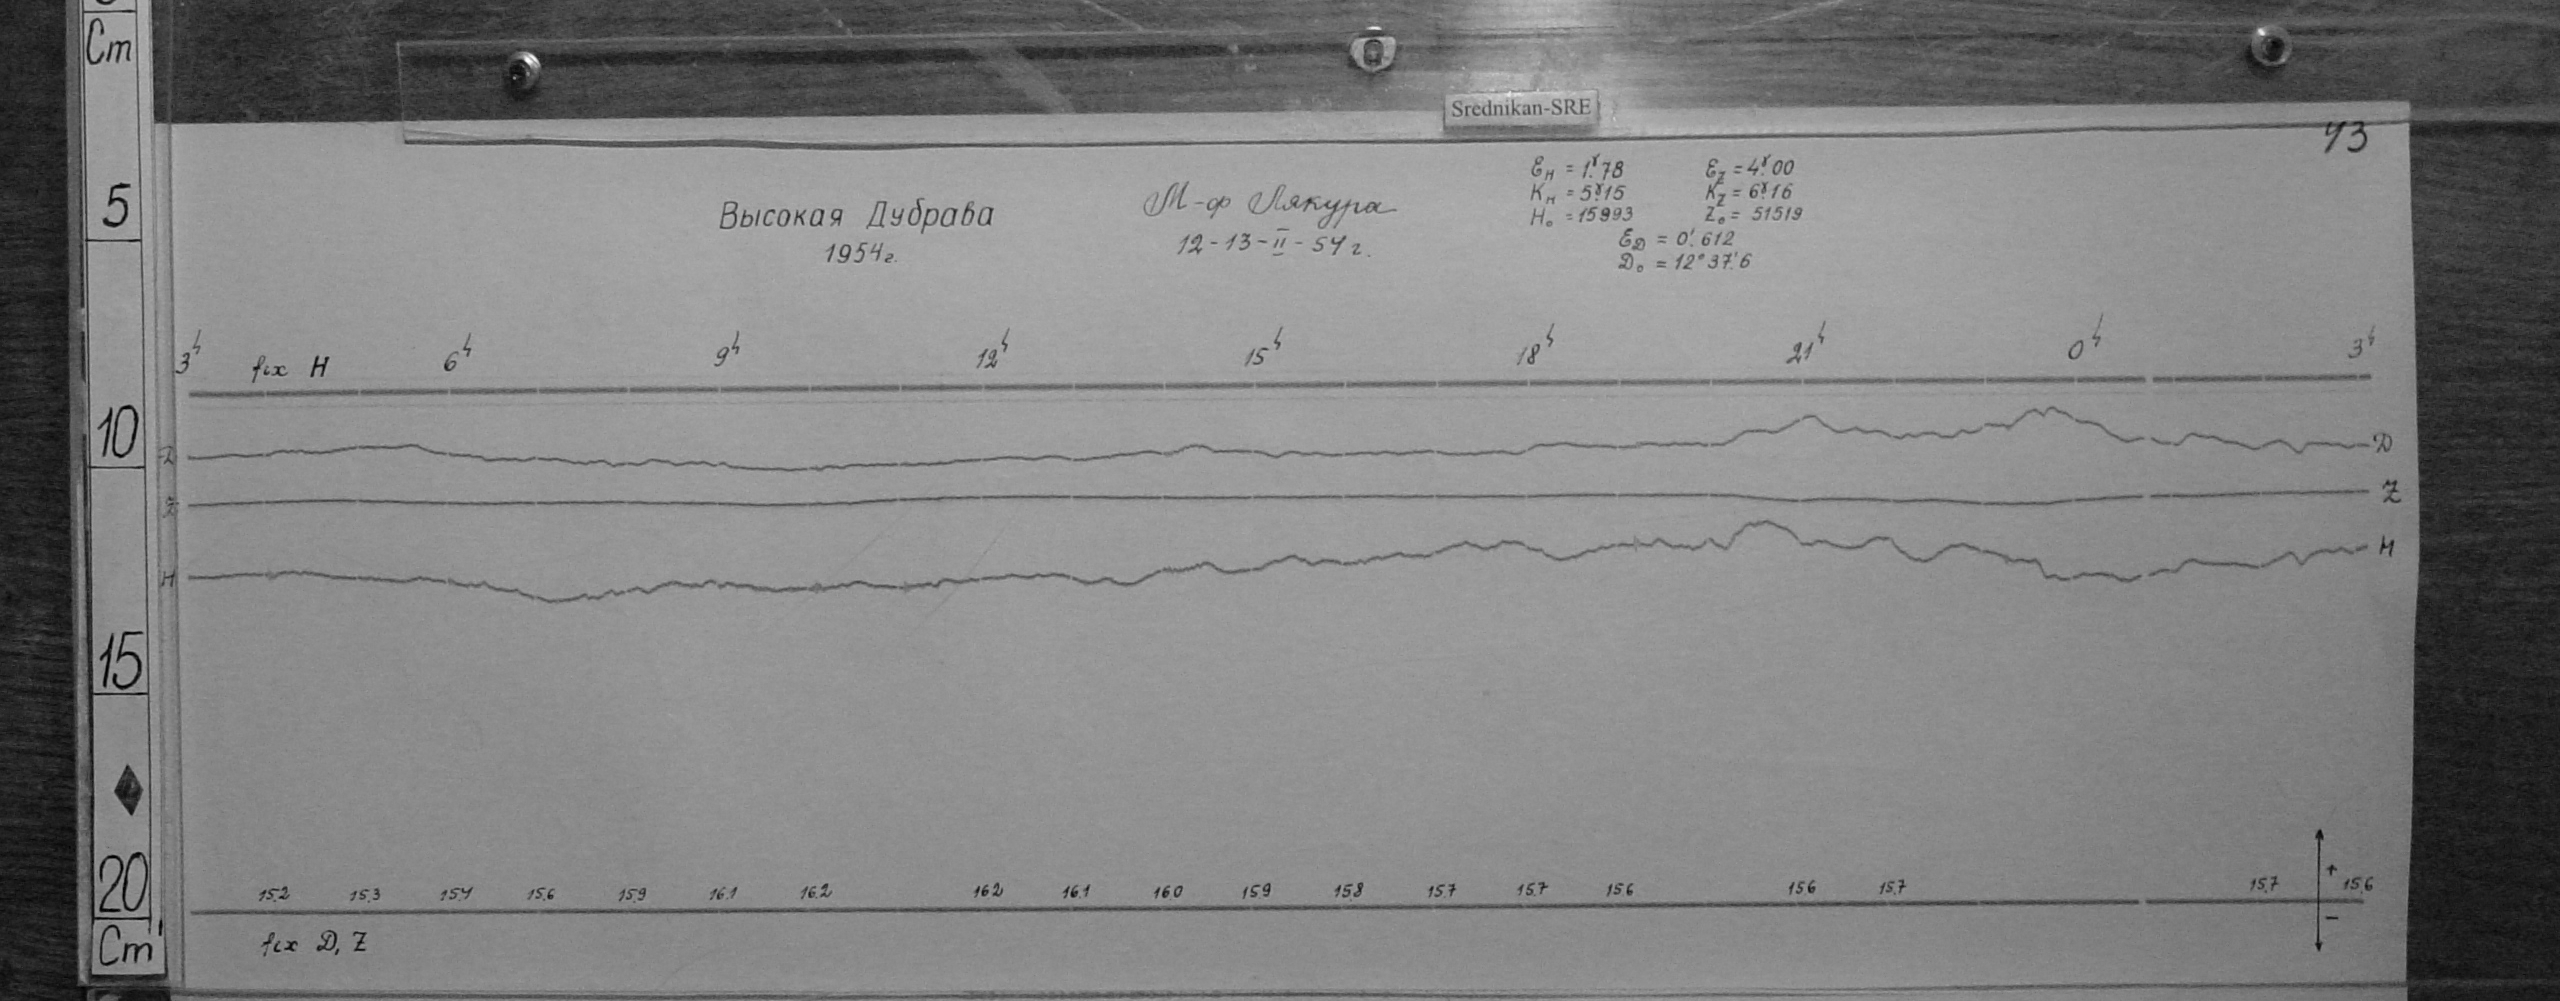 Cm
5
10
15
20
Cm
Srednikan-SRE
43
Высокая Дубрава
1954 г.
М-ф Лякура
12-13-II-54 г.
EH = 1.ɤ78 EZ = 4.ɤ00
KH = 5.ɤ15 KZ = 6.ɤ16
H₀ = 15993 Z₀ = 51519
ED = 0.′612
D₀ = 12°37.′6
3h 6h 9h 12h 15h 18h 21h 0h 3h
fix H
D D
Z Z
H H
15.2 15.3 15.4 15.6 15.9 16.1 16.2 16.2 16.1 16.0 15.9 15.8 15.7 15.7 15.6 15.6 15.7 15.7 15.6
+
−
fix D, Z